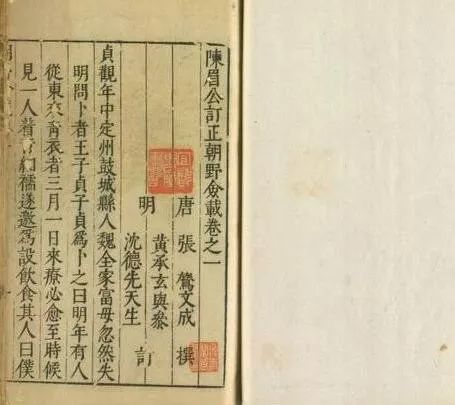 陳眉公訂正朝野僉載卷之一
唐 張鷟文成 撰
黃承玄與參
明
沈德先天生 訂
貞觀年中定州鼓城縣人魏全家富母忽然失
明問卜者王子貞子貞爲卜之曰明年有人
從東來青衣者三月一日來療必愈至時候
見一人着青紬襦遂邀爲設飲食其人曰僕